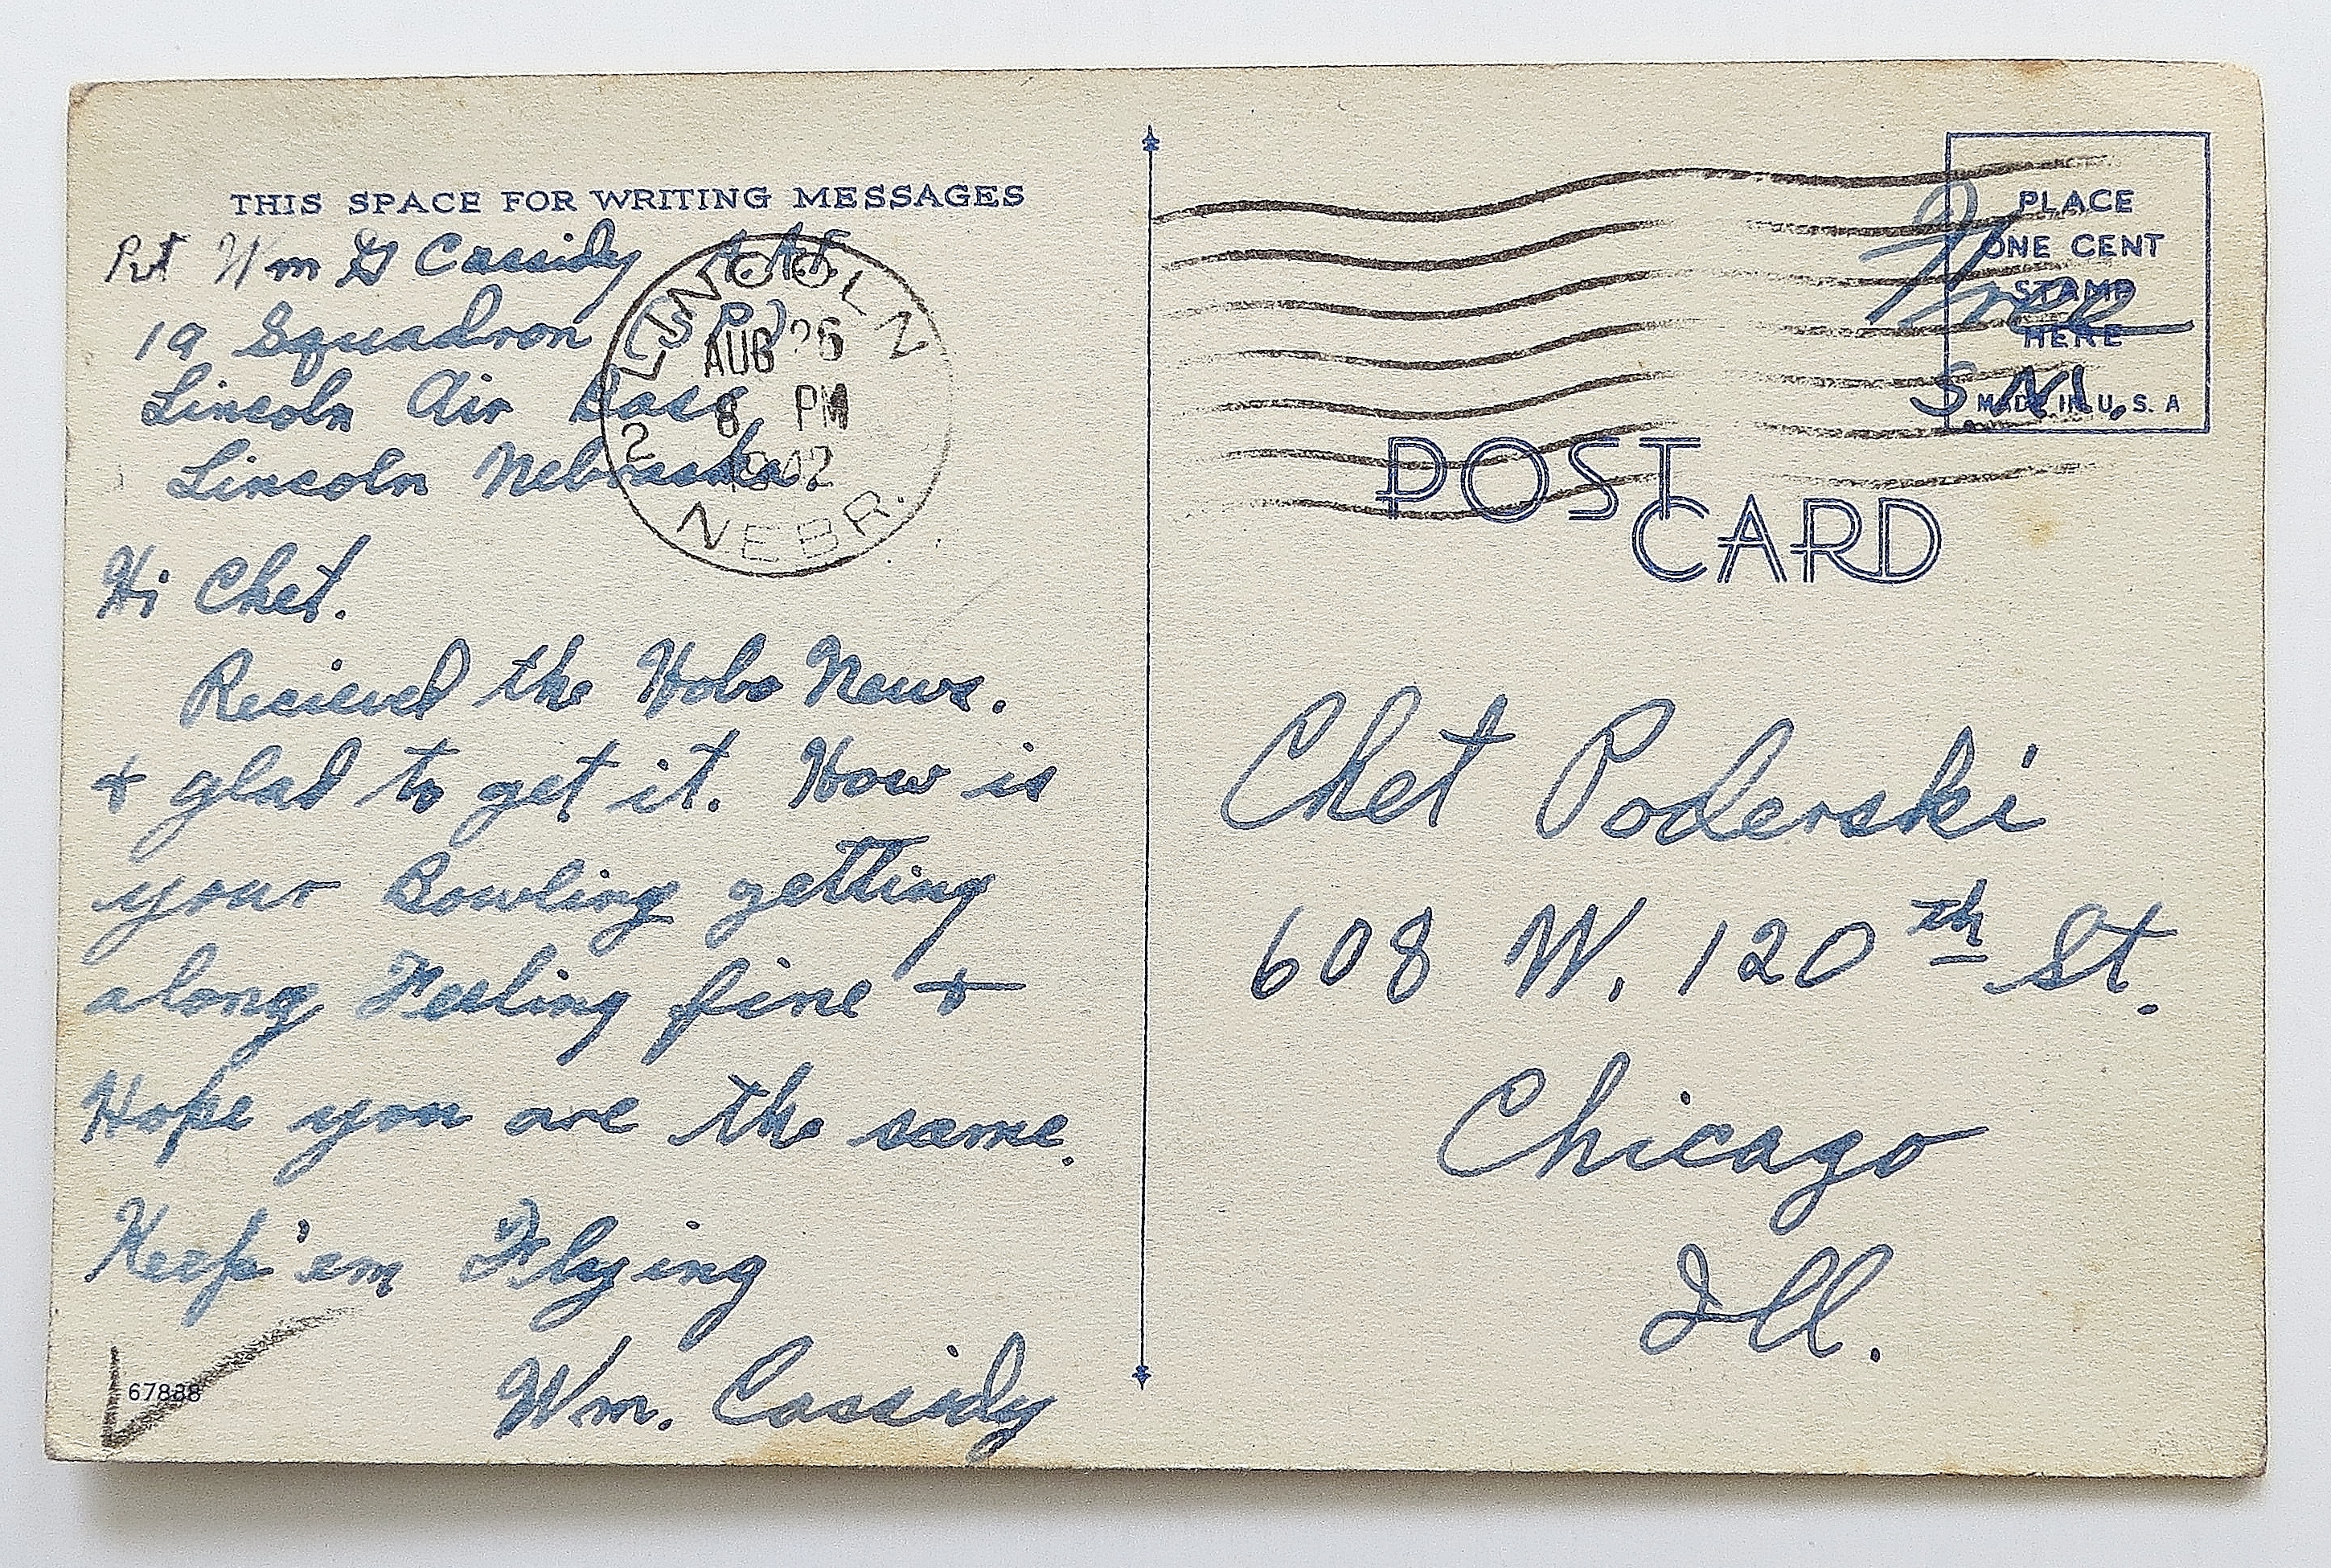 THIS SPACE FOR WRITING MESSAGES
Pvt Wm G Cassidy AAF
19 Squadron (S P)
Lincoln Air Base
Lincoln Nebraska
Hi Chet.
Recieved the Hobo News.
+ glad to get it. How is
your Bowling getting
along Feeling fine +
Hope you are the same.
Keep 'em Flying
Wm. Cassidy
67888
LINCOLN
AUG 26
8 PM
1942
2
NEBR.
Free
S.M.
PLACE
ONE CENT
STAMP
HERE
MADE IN U.S.A
POST
CARD
Chet Poderski
608 W. 120th St.
Chicago
Ill.